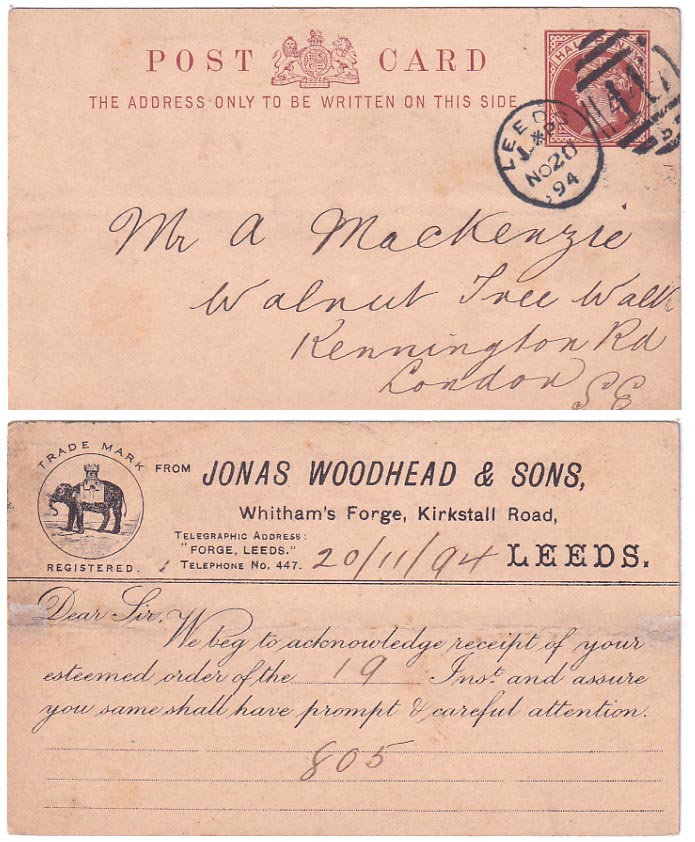 POST CARD
THE ADDRESS ONLY TO BE WRITTEN ON THIS SIDE.
LEEDS
NO 20
94
Mr A Mackenzie
Walnut Tree Walk
Kennington Rd
London
SE
TRADE MARK
REGISTERED.
FROM JONAS WOODHEAD & SONS,
Whitham's Forge, Kirkstall Road,
TELEGRAPHIC ADDRESS:
"FORGE, LEEDS."
TELEPHONE NO. 447. 20/11/94 LEEDS.
Dear Sir,
We beg to acknowledge receipt of your
esteemed order of the 19 Inst. and assure
you same shall have prompt & careful attention.
805